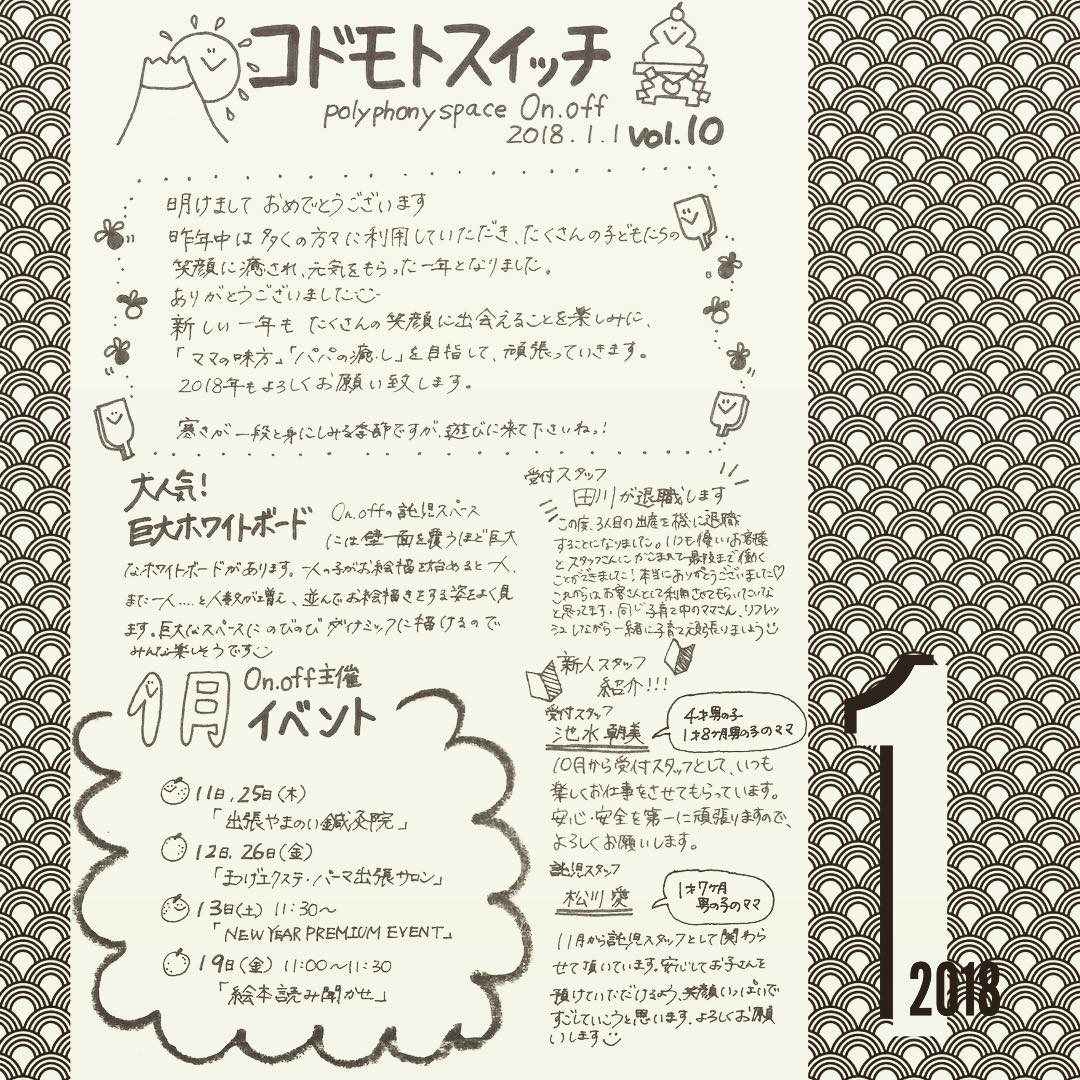 コドモトスイッチ
polyphony space On.off
2018.1.1 vol.10
明けまして おめでとうございます
昨年中は 多くの方々に利用していただき、たくさんの子どもたちの
笑顔に癒され、元気をもらった一年となりました。
ありがとうございました
新しい一年も たくさんの笑顔に出会えることを楽しみに、
「ママの味方」「パパの癒し」を目指して、頑張っていきます。
2018年もよろしくお願い致します。
寒さが一段と身にしみる季節ですが、遊びに来て下さいねっ!
大人気!
巨大ホワイトボード
On.offの託児スペース
には壁一面を覆うほど巨大
なホワイトボードがあります。一人の子がお絵描を始めると一人、
また一人....と人数が増え、並んでお絵描きをする姿をよく見
ます。巨大なスペースにのびのびダイナミックに描けるので
みんな楽しそうです
1月
On.off主催
イベント
11日、25日(木)
「出張やまのい鍼灸院」
12日、26日(金)
「まつげエクステ・パーマ出張サロン」
13日(土) 11:30〜
「NEW YEAR PREMIUM EVENT」
19日(金) 11:00〜11:30
「絵本読み聞かせ」
受付スタッフ
田川が退職します
この度、3人目の出産を機に退職
することになりました。いつも優しいお客様
とスタッフさんにかこまれて最後まで働く
ことができました!本当にありがとうございました♡
これからはお客さんとして利用させてもらいたいな
と思ってます。同じ子育て中のママさん、リフレッ
シュしながら一緒に子育て頑張りましょう
新人スタッフ
紹介!!!
受付スタッフ
池水 朝美
4才男の子
1才8ヶ月男の子のママ
10月から受付スタッフとして、いつも
楽しくお仕事をさせてもらっています。
安心・安全を第一に頑張りますので、
よろしくお願いします。
託児スタッフ
松川 愛
1才7ヶ月
男の子のママ
11月から託児スタッフとして関わら
せて頂いています。安心してお子さんを
預けていただけるよう、笑顔いっぱいで
すごしていこうと思います。よろしくお願
いします
1
2018